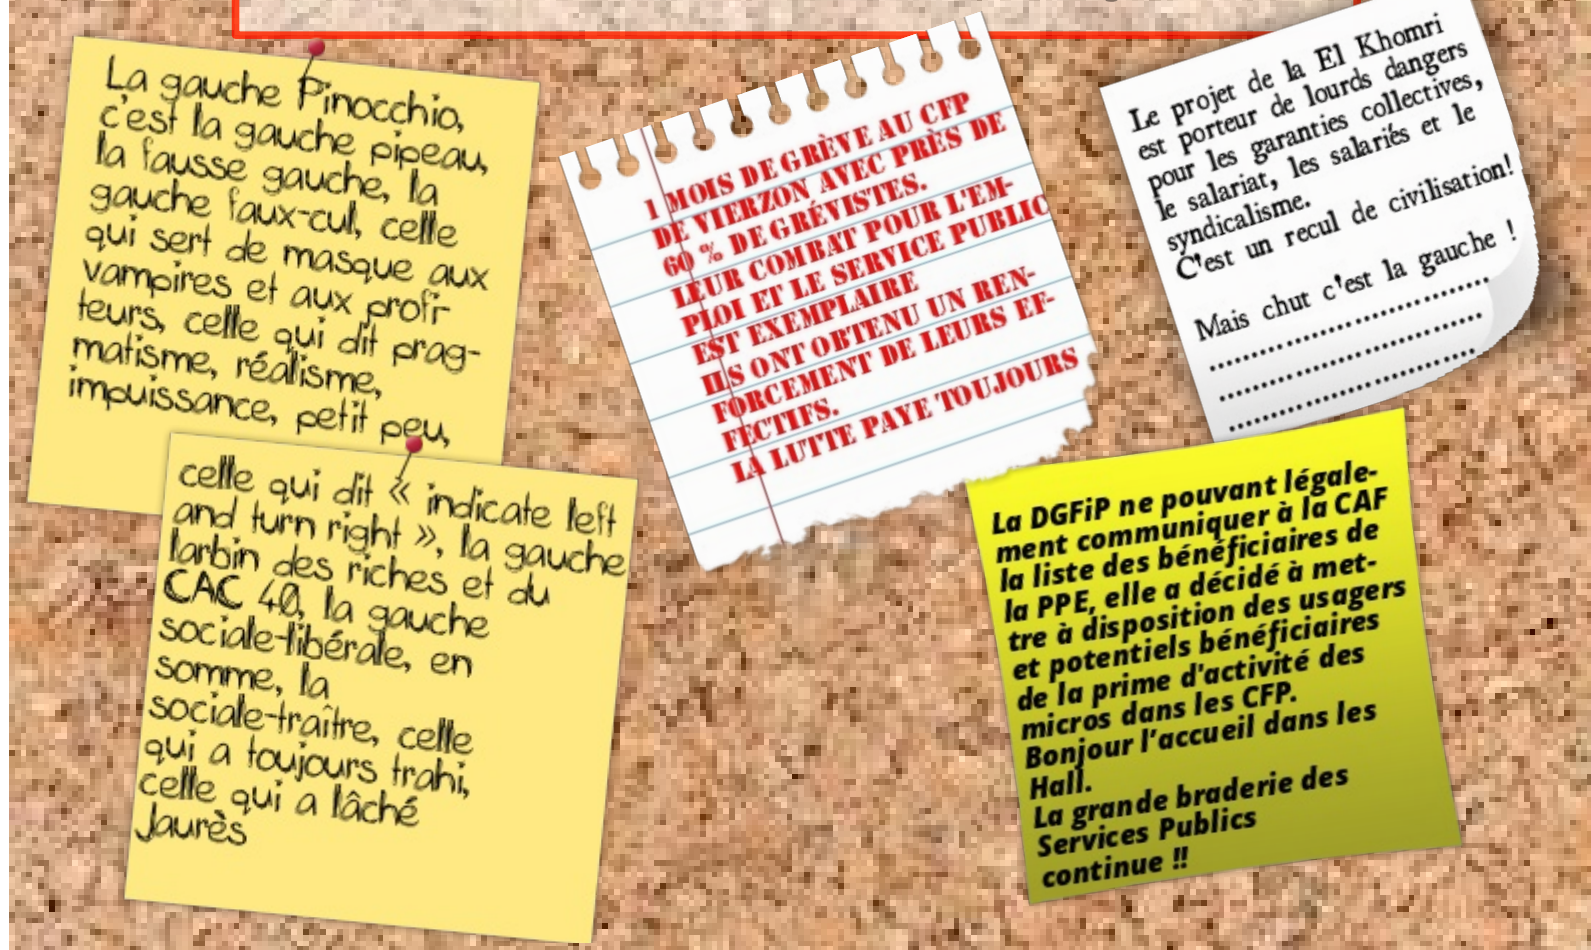 La gauche Pinocchio,
c'est la gauche pipeau,
la fausse gauche, la
gauche faux-cul, celle
qui sert de masque aux
vampires et aux profi-
teurs, celle qui dit prag-
matisme, réalisme,
impuissance, petit peu,
celle qui dit « indicate left
and turn right », la gauche
larbin des riches et du
CAC 40, la gauche
sociale-libérale, en
somme, la
sociale-traître, celle
qui a toujours trahi,
celle qui a lâché
Jaurès
1 MOIS DE GRÈVE AU CFP
DE VIERZON AVEC PRÈS DE
60 % DE GRÉVISTES.
LEUR COMBAT POUR L'EM-
PLOI ET LE SERVICE PUBLIC
EST EXEMPLAIRE
ILS ONT OBTENU UN REN-
FORCEMENT DE LEURS EF-
FECTIFS.
LA LUTTE PAYE TOUJOURS
Le projet de la El Khomri
est porteur de lourds dangers
pour les garanties collectives,
le salariat, les salariés et le
syndicalisme.
C'est un recul de civilisation!
Mais chut c'est la gauche !
........................................
......................................
....................................
La DGFiP ne pouvant légale-
ment communiquer à la CAF
la liste des bénéficiaires de
la PPE, elle a décidé à met-
tre à disposition des usagers
et potentiels bénéficiaires
de la prime d'activité des
micros dans les CFP.
Bonjour l'accueil dans les
Hall.
La grande braderie des
Services Publics
continue !!